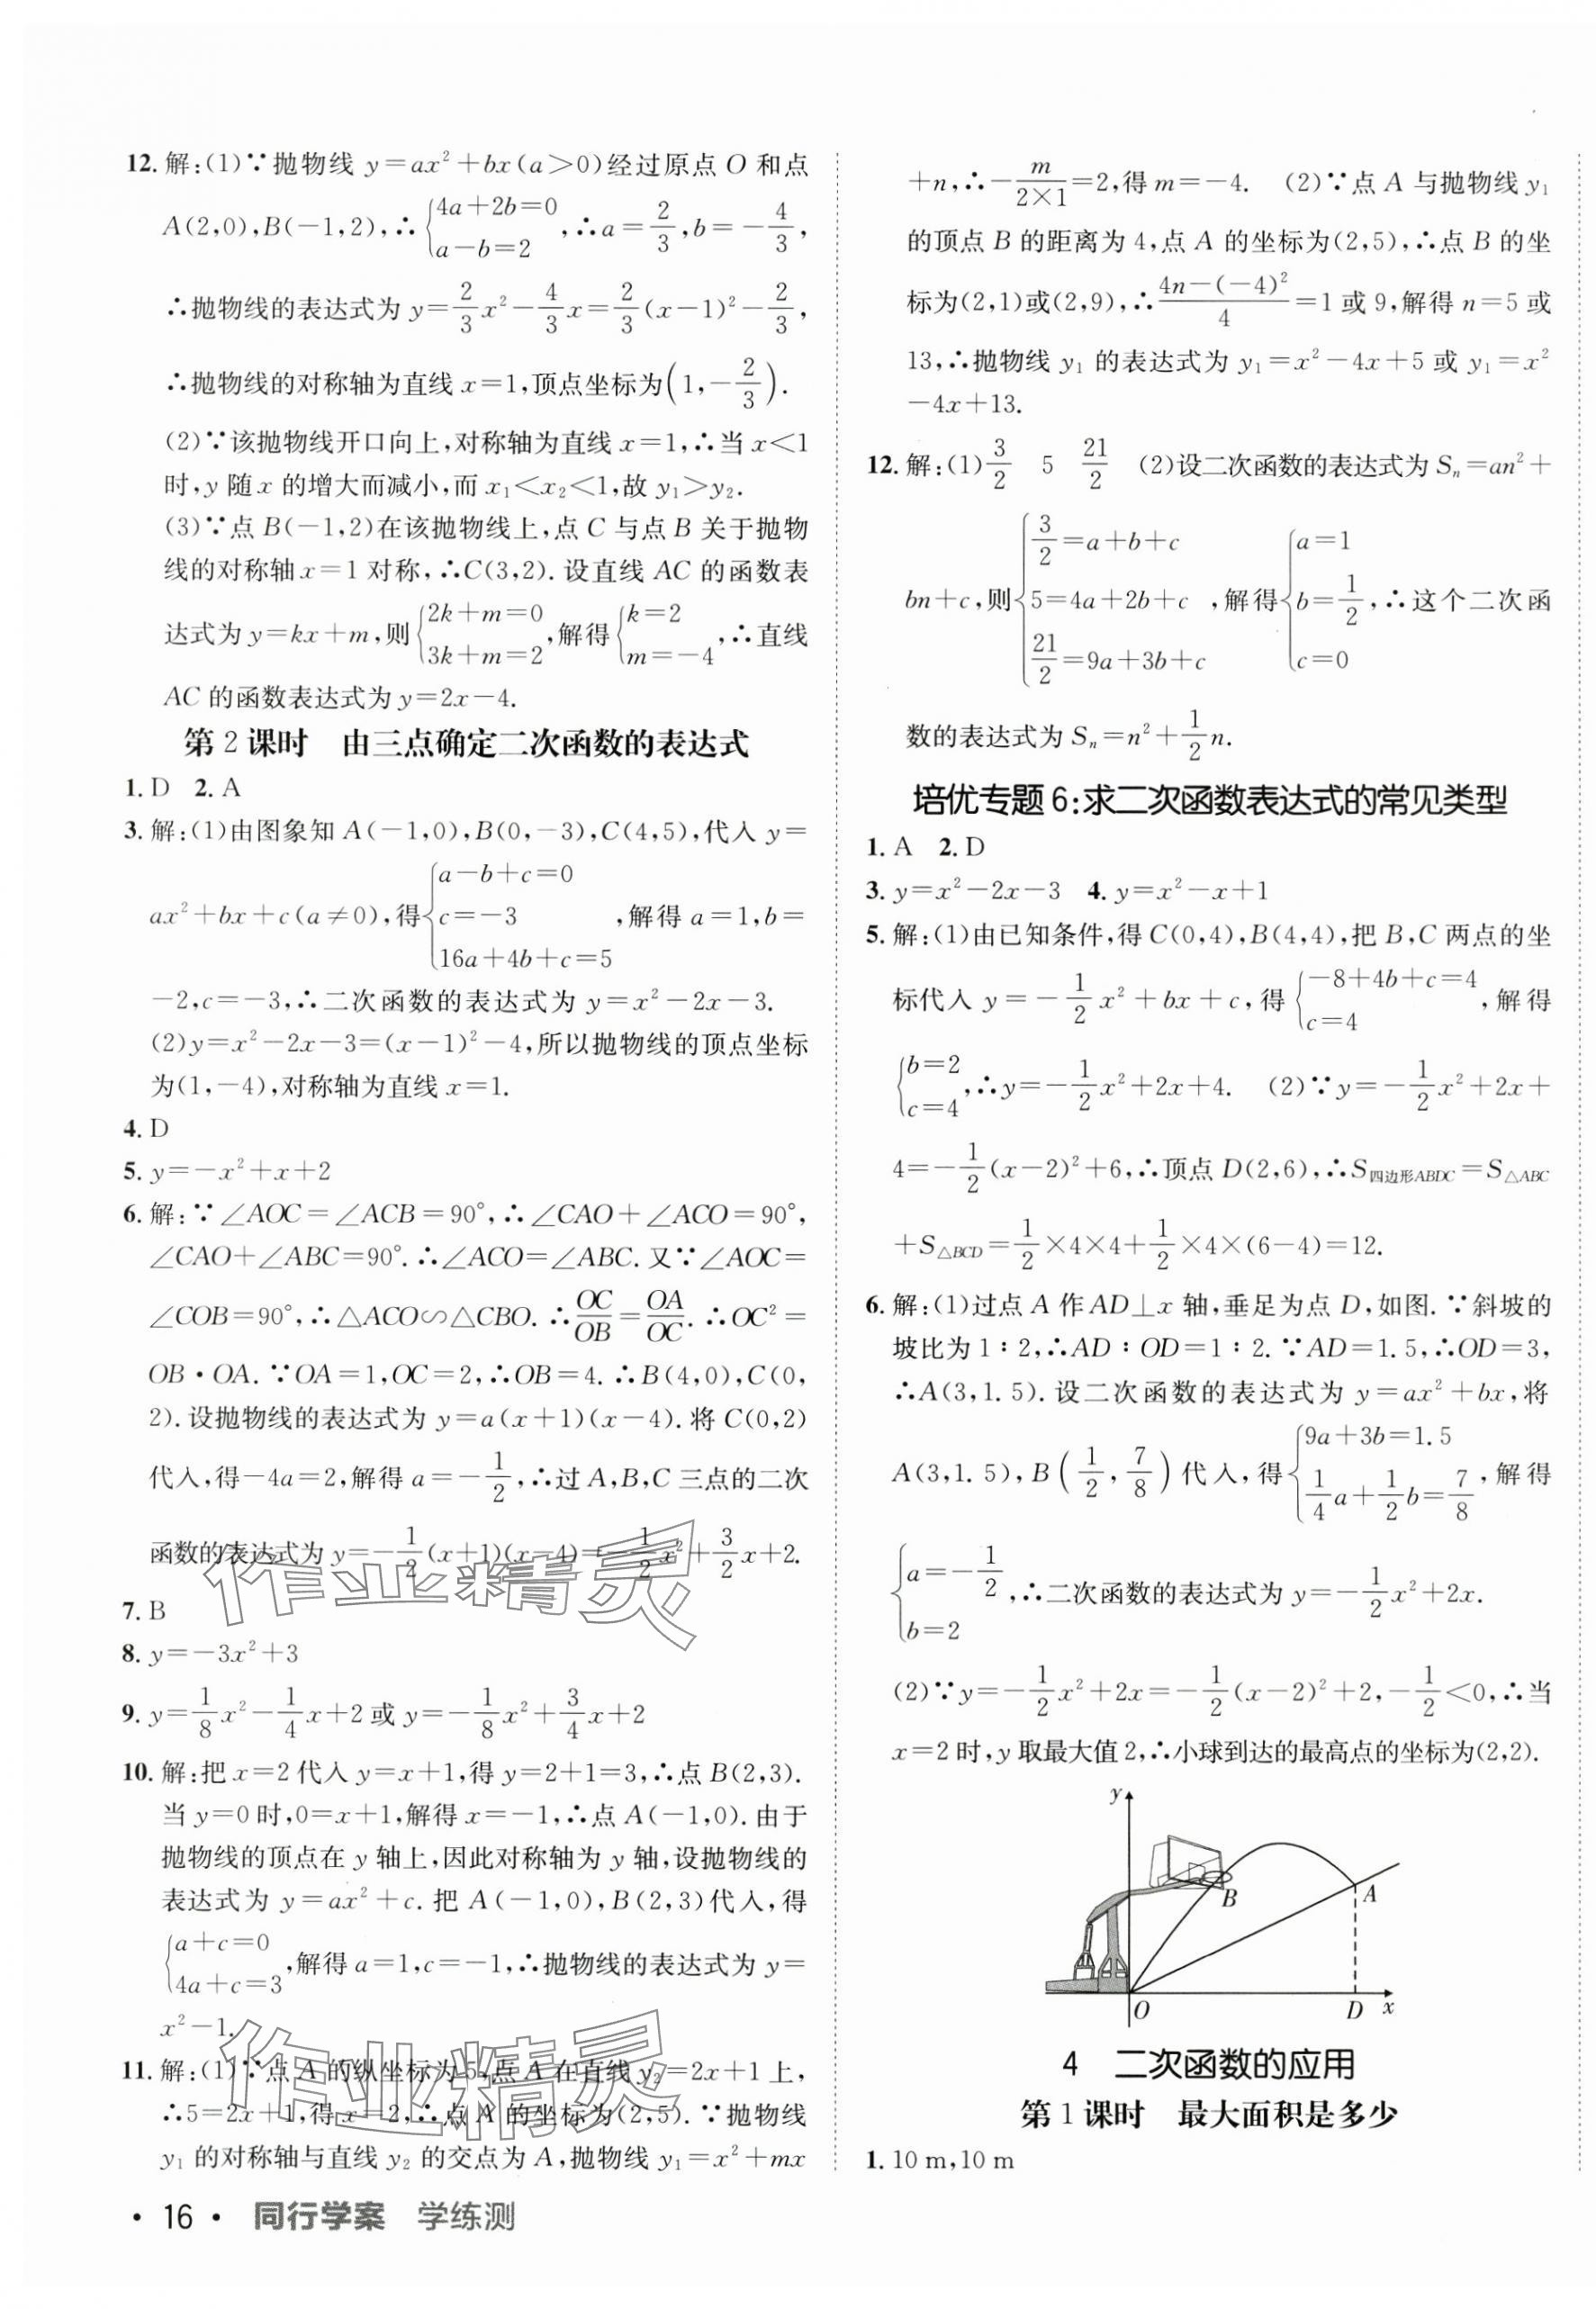 12. 解:(1)∵抛物线 y=ax²+bx(a>0)经过原点 O 和点
A(2,0),B(-1,2),∴{4a+2b=0 a-b=2,∴a=2/3,b=-4/3,
∴抛物线的表达式为 y=2/3x²-4/3x=2/3(x-1)²-2/3,
∴抛物线的对称轴为直线 x=1,顶点坐标为(1,-2/3).
(2)∵该抛物线开口向上,对称轴为直线 x=1,∴当 x<1
时,y 随 x 的增大而减小,而 x₁<x₂<1,故 y₁>y₂.
(3)∵点 B(-1,2)在该抛物线上,点 C 与点 B 关于抛物
线的对称轴 x=1 对称,∴C(3,2). 设直线 AC 的函数表
达式为 y=kx+m,则{2k+m=0 3k+m=2,解得{k=2 m=-4,∴直线
AC 的函数表达式为 y=2x-4.
第 2 课时 由三点确定二次函数的表达式
1. D 2. A
3. 解:(1)由图象知 A(-1,0),B(0,-3),C(4,5),代入 y=
ax²+bx+c(a≠0),得{a-b+c=0 c=-3 16a+4b+c=5,解得 a=1,b=
-2,c=-3,∴二次函数的表达式为 y=x²-2x-3.
(2)y=x²-2x-3=(x-1)²-4,所以抛物线的顶点坐标
为(1,-4),对称轴为直线 x=1.
4. D
5. y=-x²+x+2
6. 解:∵∠AOC=∠ACB=90°,∴∠CAO+∠ACO=90°,
∠CAO+∠ABC=90°.∴∠ACO=∠ABC. 又∵∠AOC=
∠COB=90°,∴△ACO∽△CBO. ∴OC/OB=OA/OC. ∴OC²=
OB·OA. ∵OA=1,OC=2,∴OB=4. ∴B(4,0),C(0,
2). 设抛物线的表达式为 y=a(x+1)(x-4). 将 C(0,2)
代入,得-4a=2,解得 a=-1/2,∴过 A,B,C 三点的二次
函数的表达式为 y=-1/2(x+1)(x-4)=-1/2x²+3/2x+2.
7. B
8. y=-3x²+3
9. y=1/8x²-1/4x+2 或 y=-1/8x²+3/4x+2
10. 解:把 x=2 代入 y=x+1,得 y=2+1=3,∴点 B(2,3).
当 y=0 时,0=x+1,解得 x=-1,∴点 A(-1,0). 由于
抛物线的顶点在 y 轴上,因此对称轴为 y 轴,设抛物线的
表达式为 y=ax²+c. 把 A(-1,0),B(2,3)代入,得
{a+c=0 4a+c=3,解得 a=1,c=-1,∴抛物线的表达式为 y=
x²-1.
11. 解:(1)∵点 A 的纵坐标为 5,点 A 在直线 y₂=2x+1 上,
∴5=2x+1,得 x=2,∴点 A 的坐标为(2,5). ∵抛物线
y₁ 的对称轴与直线 y₂ 的交点为 A,抛物线 y₁=x²+mx
作业精灵
作业精灵
· 16 · 同行学案 学练测
+n,∴-m/(2×1)=2,得 m=-4. (2)∵点 A 与抛物线 y₁
的顶点 B 的距离为 4,点 A 的坐标为(2,5),∴点 B 的坐
标为(2,1)或(2,9),∴(4n-(-4)²)/4=1 或 9,解得 n=5 或
13,∴抛物线 y₁ 的表达式为 y₁=x²-4x+5 或 y₁=x²
-4x+13.
12. 解:(1)3/2 5 21/2 (2)设二次函数的表达式为 Sₙ=an²+
bn+c,则{3/2=a+b+c 5=4a+2b+c 21/2=9a+3b+c,解得{a=1 b=1/2 c=0,∴这个二次函
数的表达式为 Sₙ=n²+1/2n.
培优专题 6:求二次函数表达式的常见类型
1. A 2. D
3. y=x²-2x-3 4. y=x²-x+1
5. 解:(1)由已知条件,得 C(0,4),B(4,4),把 B,C 两点的坐
标代入 y=-1/2x²+bx+c,得{-8+4b+c=4 c=4,解得
{b=2 c=4,∴y=-1/2x²+2x+4. (2)∵y=-1/2x²+2x+
4=-1/2(x-2)²+6,∴顶点 D(2,6),∴S四边形ABDC=S△ABC
+S△BCD=1/2×4×4+1/2×4×(6-4)=12.
6. 解:(1)过点 A 作 AD⊥x 轴,垂足为点 D,如图. ∵斜坡的
坡比为 1∶2,∴AD∶OD=1∶2. ∵AD=1.5,∴OD=3,
∴A(3,1.5). 设二次函数的表达式为 y=ax²+bx,将
A(3,1.5),B(1/2,7/8)代入,得{9a+3b=1.5 1/4a+1/2b=7/8,解得
{a=-1/2 b=2,∴二次函数的表达式为 y=-1/2x²+2x.
(2)∵y=-1/2x²+2x=-1/2(x-2)²+2,-1/2<0,∴当
x=2 时,y 取最大值 2,∴小球到达的最高点的坐标为(2,2).
y
B
A
O
D
x
4 二次函数的应用
第 1 课时 最大面积是多少
1. 10 m,10 m